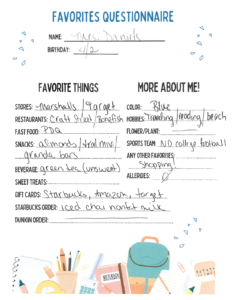 FAVORITES QUESTIONNAIRE
NAME: Mrs. Daniels
BIRTHDAY: 4/2
FAVORITE THINGS
STORES: Marshalls / Target
RESTAURANTS: Craft Street / Bonefish
FAST FOOD: PDQ
SNACKS: almonds / trail mix /
granola bars
BEVERAGE: green tea (unsweet)
SWEET TREATS:
GIFT CARDS: Starbucks, Amazon, Target
STARBUCKS ORDER: iced chai nonfat milk
DUNKIN ORDER:
MORE ABOUT ME!
COLOR: Blue
HOBBIES: Traveling / reading / beach
FLOWER/PLANT:
SPORTS TEAM: ND college football
ANY OTHER FAVORITES:
Shopping!
ALLERGIES:
NOTEBOOK